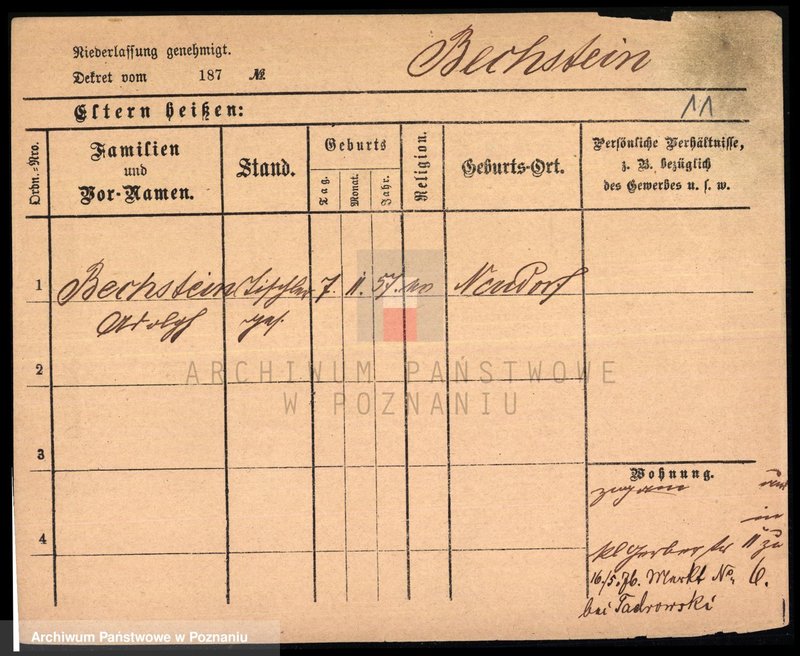 Niederlassung genehmigt.
Dekret vom 187 No
Bechstein
11
Eltern heißen:
Ordn.-Nro.
Familien
und
Vor-Namen.
Stand.
Geburts
Tag.
Monat.
Jahr.
Religion.
Geburts-Ort.
Persönliche Verhältnisse,
z. B. bezüglich
des Gewerbes u. s. w.
1 Bechstein Tischler 7. 11. 57. Neudorf
Adolph ges.
2
ARCHIWUM PAŃSTWOWE
W POZNANIU
3
Wohnung.
4
kl Gerber str 11 zu
16/5.76. Markt No. 6.
bei Tadrowski
Archiwum Państwowe w Poznaniu